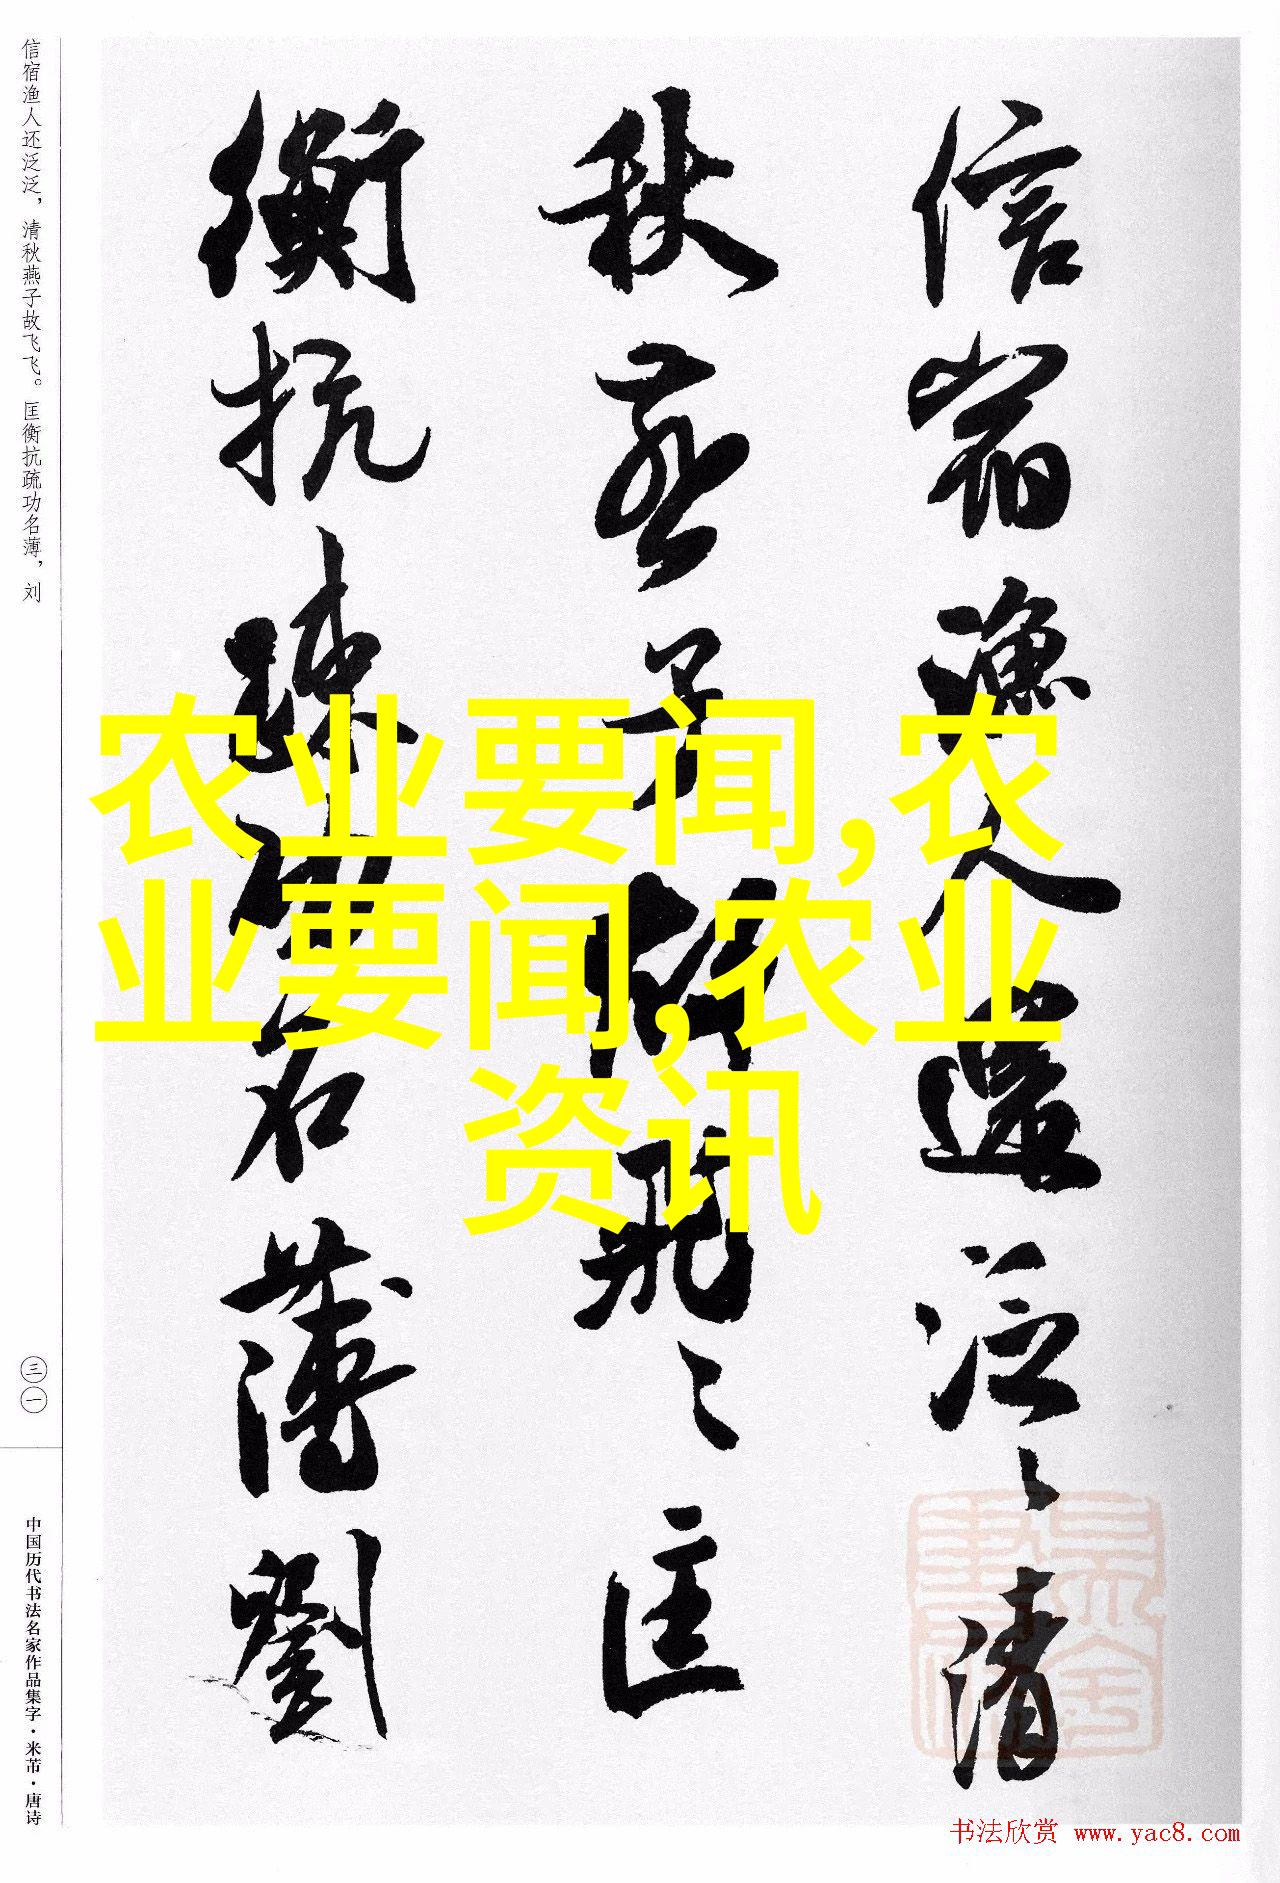 信宿渔人还泛泛，清秋燕子故飞飞。匡衡抗疏功名薄，刘
三一
中国历代书法名家作品集字·米芾·唐诗
信宿漁人還泛〻清
秋燕子故飛〻匡
衡抗疏功名薄劉
农业要闻,农
业要闻,农业
资讯
书法欣赏 www.yac8.com